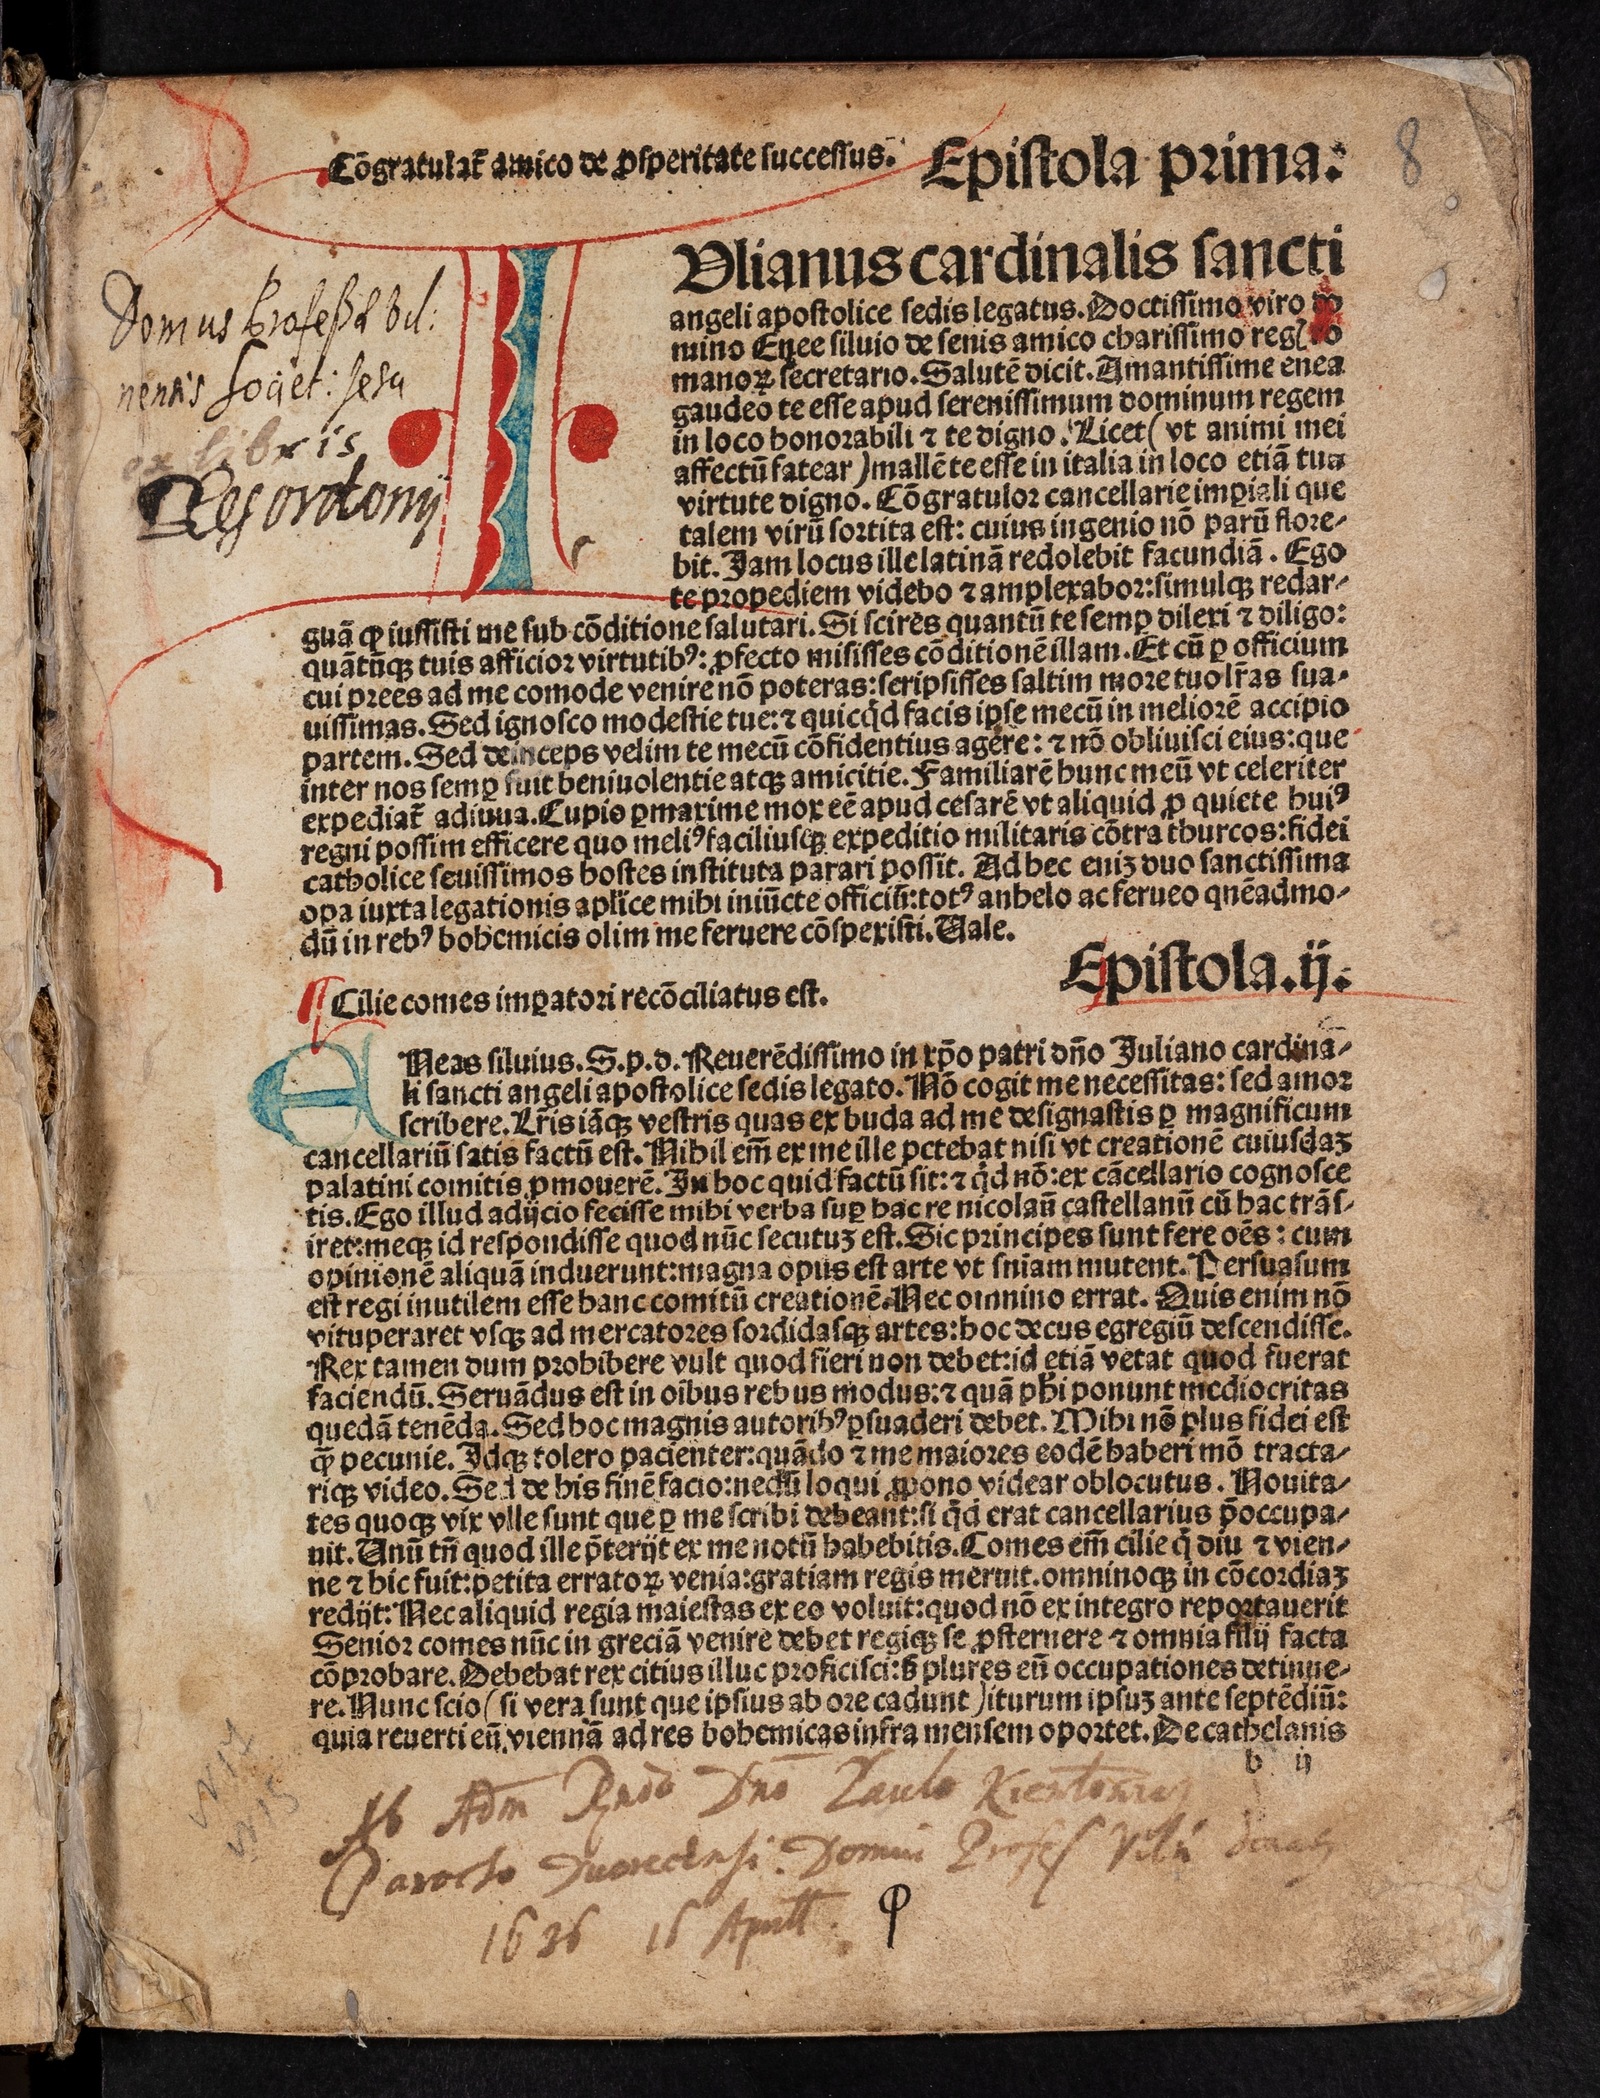 8
Cõgratulat̃ amico de ꝓsperitate successus. Epistola prima:
IVlianus cardinalis sancti
angeli apostolice sedis legatus. Doctissimo viro do
mino Enee siluio de senis amico charissimo reg{ ro
manoꝝ secretario. Salutẽ dicit. Amantissime enea
gaudeo te esse apud serenissimum dominum regem
in loco honorabili ⁊ te digno. Licet (vt animi mei
affectũ fatear) mallẽ te esse in italia in loco etiã tua
virtute digno. Cõgratulor cancellarie imꝑiali que
talem virũ sortita est: cuius ingenio nõ parũ flore-
bit. Jam locus ille latinã redolebit facundiã. Ego
te propediem videbo ⁊ amplexabor: simulqꝫ redar-
guã ꝙ iussisti me sub cõditione salutari. Si scires quantũ te semꝑ dilexi ⁊ diligo:
quãtũqꝫ tuis afficior virtutibꝰ: ꝓfecto misisses cõditionẽ illam. Et cũ ꝑ officium
cui prees ad me comode venire nõ poteras: scripsisses saltim more tuo lr̃as sua-
uissimas. Sed ignosco modestie tue: ⁊ quicq̇d facis ipse mecũ in meliorẽ accipio
partem. Sed deinceps velim te mecũ cõfidentius agere: ⁊ nõ obliuisci eius: que
inter nos semꝑ fuit beniuolentie atqꝫ amicitie. Familiarẽ hunc meũ vt celeriter
expediat̃ adiuua. Cupio ꝑmaxime mox eẽ apud cesarẽ vt aliquid ꝓ quiete huiꝰ
regni possim efficere quo meliꝰ faciliusqꝫ expeditio militaris cõtra thurcos: fidei
catholice seuissimos hostes instituta parari possit. Ad hec eniꝫ duo sanctissima
oꝑa iuxta legationis apl̃ice mihi iniũcte officiũ: totꝰ anhelo ac ferueo quẽadmo-
dũ in rebꝰ bohemicis olim me feruere cõspexisti. Uale.
Epistola.ij.
¶ Cilie comes imꝑatori recõciliatus est.
ENeas siluius. S.p.d. Reuerẽdissimo in xp̃o patri dño Juliano cardina-
li sancti angeli apostolice sedis legato. Nõ cogit me necessitas: sed amor
scribere. Lr̃is iãqꝫ vestris quas ex buda ad me designastis ꝑ magnificum
cancellariũ satis factũ est. Nihil em̃ ex me ille petebat nisi vt creationẽ cuiusdaꝫ
palatini comitis ꝓmouerẽ. In hoc quid factũ sit: ⁊ q̇d nõ: ex cãcellario cognosce
tis. Ego illud adijcio fecisse mihi verba suꝑ hac re nicolaũ castellanũ cũ hac trãs-
iret: meqꝫ id respondisse quod nũc secutuꝫ est. Sic principes sunt fere oẽs: cum
opinionẽ aliquã induerunt: magna opus est arte vt sñiam mutent. Persuasum
est regi inutilem esse hanc comitũ creationẽ. Nec omnino errat. Quis enim nõ
vituperaret vsqꝫ ad mercatores sordidasqꝫ artes: hoc decus egregiũ descendisse.
Rex tamen dum prohibere vult quod fieri non debet: id etiã vetat quod fuerat
faciendũ. Seruãdus est in oĩbus rebus modus: ⁊ quã phi ponunt mediocritas
quedã tenẽda. Sed hoc magnis autoribꝰ ꝑsuaderi debet. Mihi nõ plus fidei est
q̃ pecunie. Idqꝫ tolero pacienter: quãdo ⁊ me maiores eodẽ haberi mõ tracta-
riqꝫ video. Sed de his finẽ facio: nedũ loqui ꝓpono videar oblocutus. Nouita-
tes quoqꝫ vix vlle sunt que ꝑ me scribi debeant: si q̇d erat cancellarius p̃occupa-
uit. Unũ tñ quod ille p̃terijt ex me notũ habebitis. Comes em̃ cilie q̇ diu ⁊ vien-
ne ⁊ hic fuit: petita erratoꝝ venia: gratiam regis meruit. omninoqꝫ in cõcordiaꝫ
redijt: Nec aliquid regia maiestas ex eo voluit: quod nõ ex integro reportauerit
Senior comes nũc in greciã venire debet regiqꝫ se ꝓsternere ⁊ omnia filij facta
cõprobare. Debebat rex citius illuc proficisci: s̃ plures eũ occupationes detinue-
re. Nunc scio (si vera sunt que ipsius ab ore cadunt) iturum ipsuꝫ ante septẽdiũ:
quia reuerti eũ viennã ad res bohemicas infra mensem oportet. De cathelanis
b ij
Domus Professæ Vil:
nensis Societ: Jesu
ex libris
Ab Adm Rndo Dno Paulo
Parocho Domui Profess Viln
1636 16 Aprill.